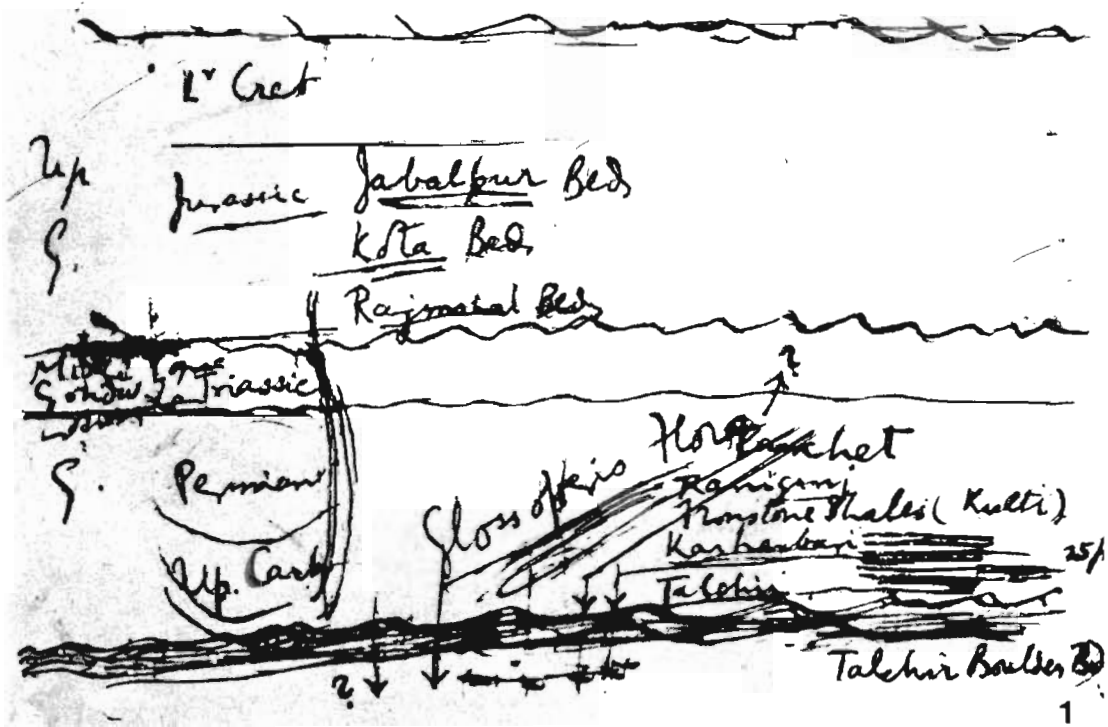 Lr Cret
Up
G.
Jurassic
Jabalpur Beds
Kota Beds
Rajmahal Beds
Middle
Gondw
Triassic
?
G.
Permian
Up. Carb
Glossopteris Flora
Panchet
Raniganj
Ironstone Shales (Kulti)
Karharbari
Talchir
25/
?
Talchir Boulder Bed
1